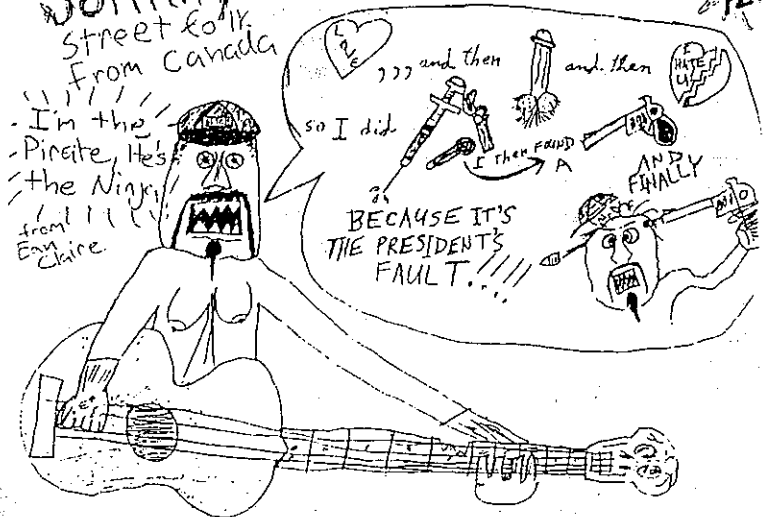 street folk
from Canada
I'm the
Pirate, He's
the Ninja,
from
Eau
Claire.
and then
and then
so I did
I HATE
I then FOUND
A
AND
FINALLY
BECAUSE IT'S
THE PRESIDENT'S
FAULT....